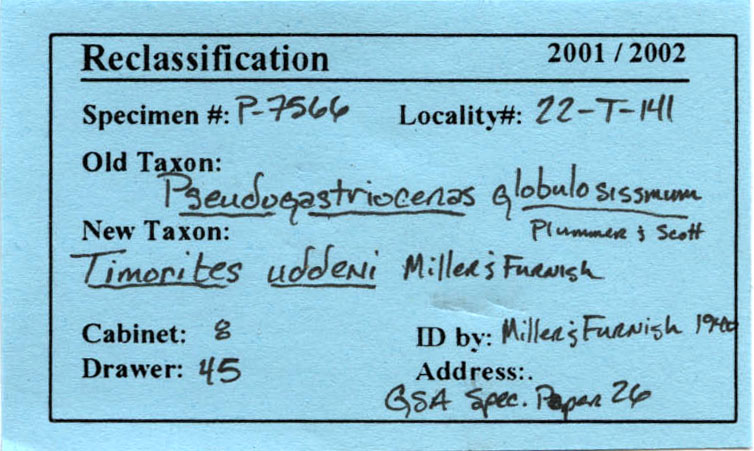 Reclassification 2001 / 2002
Specimen #: P-7566 Locality#: 22-T-141
Old Taxon:
Pseudogastrioceras globulosissmum
New Taxon: Plummer & Scott
Timorites uddeni Miller & Furnish
Cabinet: 8 ID by: Miller & Furnish 1940
Drawer: 45 Address:.
GSA Spec. Paper 26